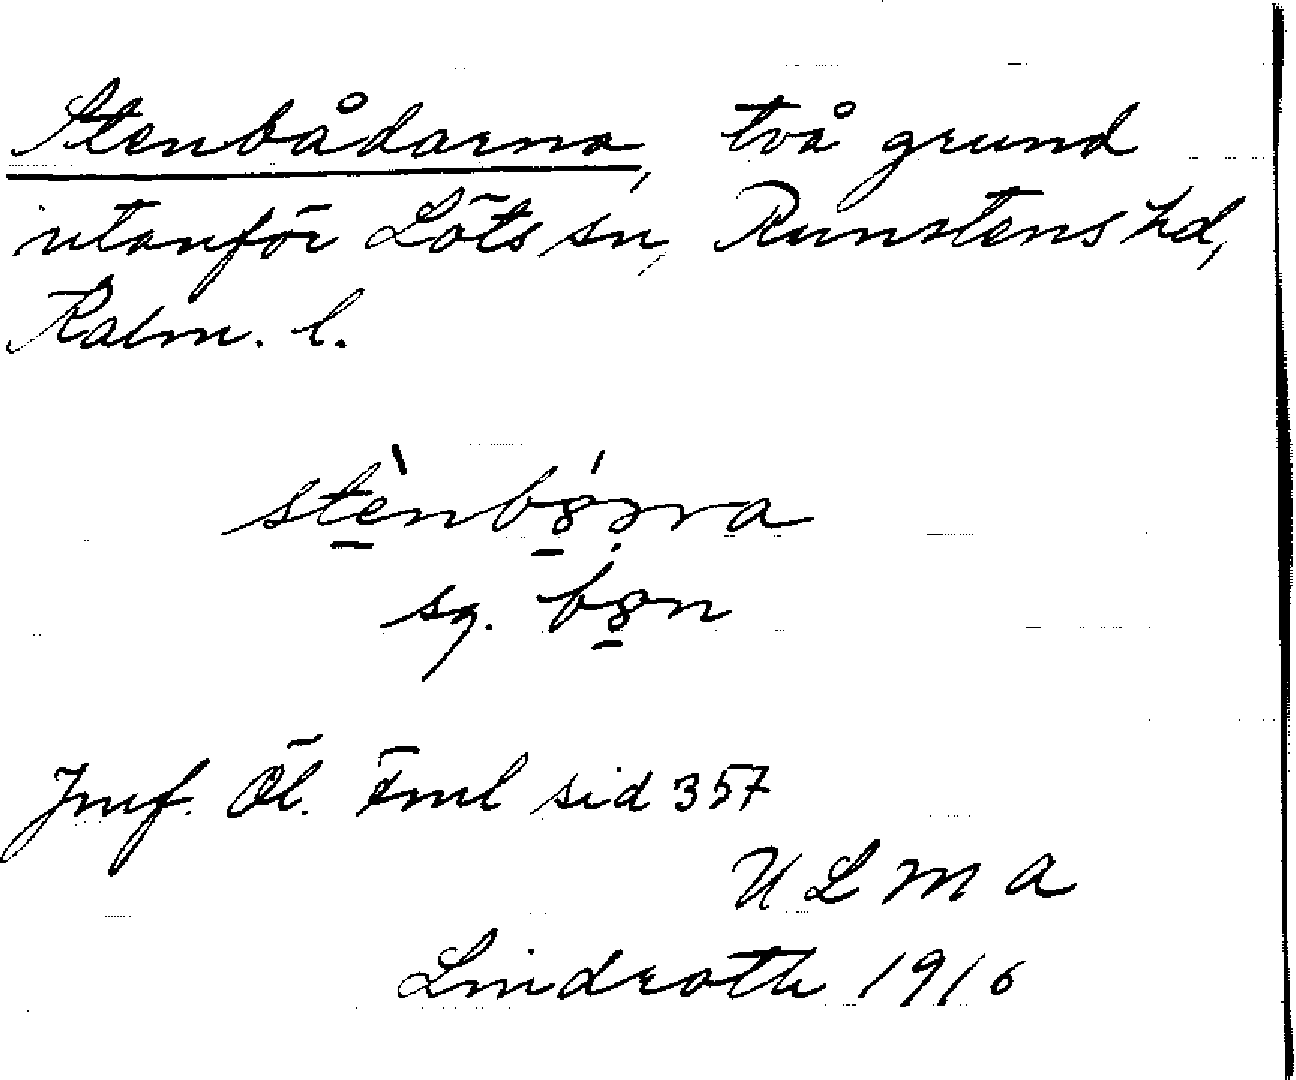 Stenbådarna, två grund
utanför Löts sn, Runstens hd,
Kalm. l.
sg.
Jmf. Öl. Fml sid 357
ULMA
Lindroth 1916